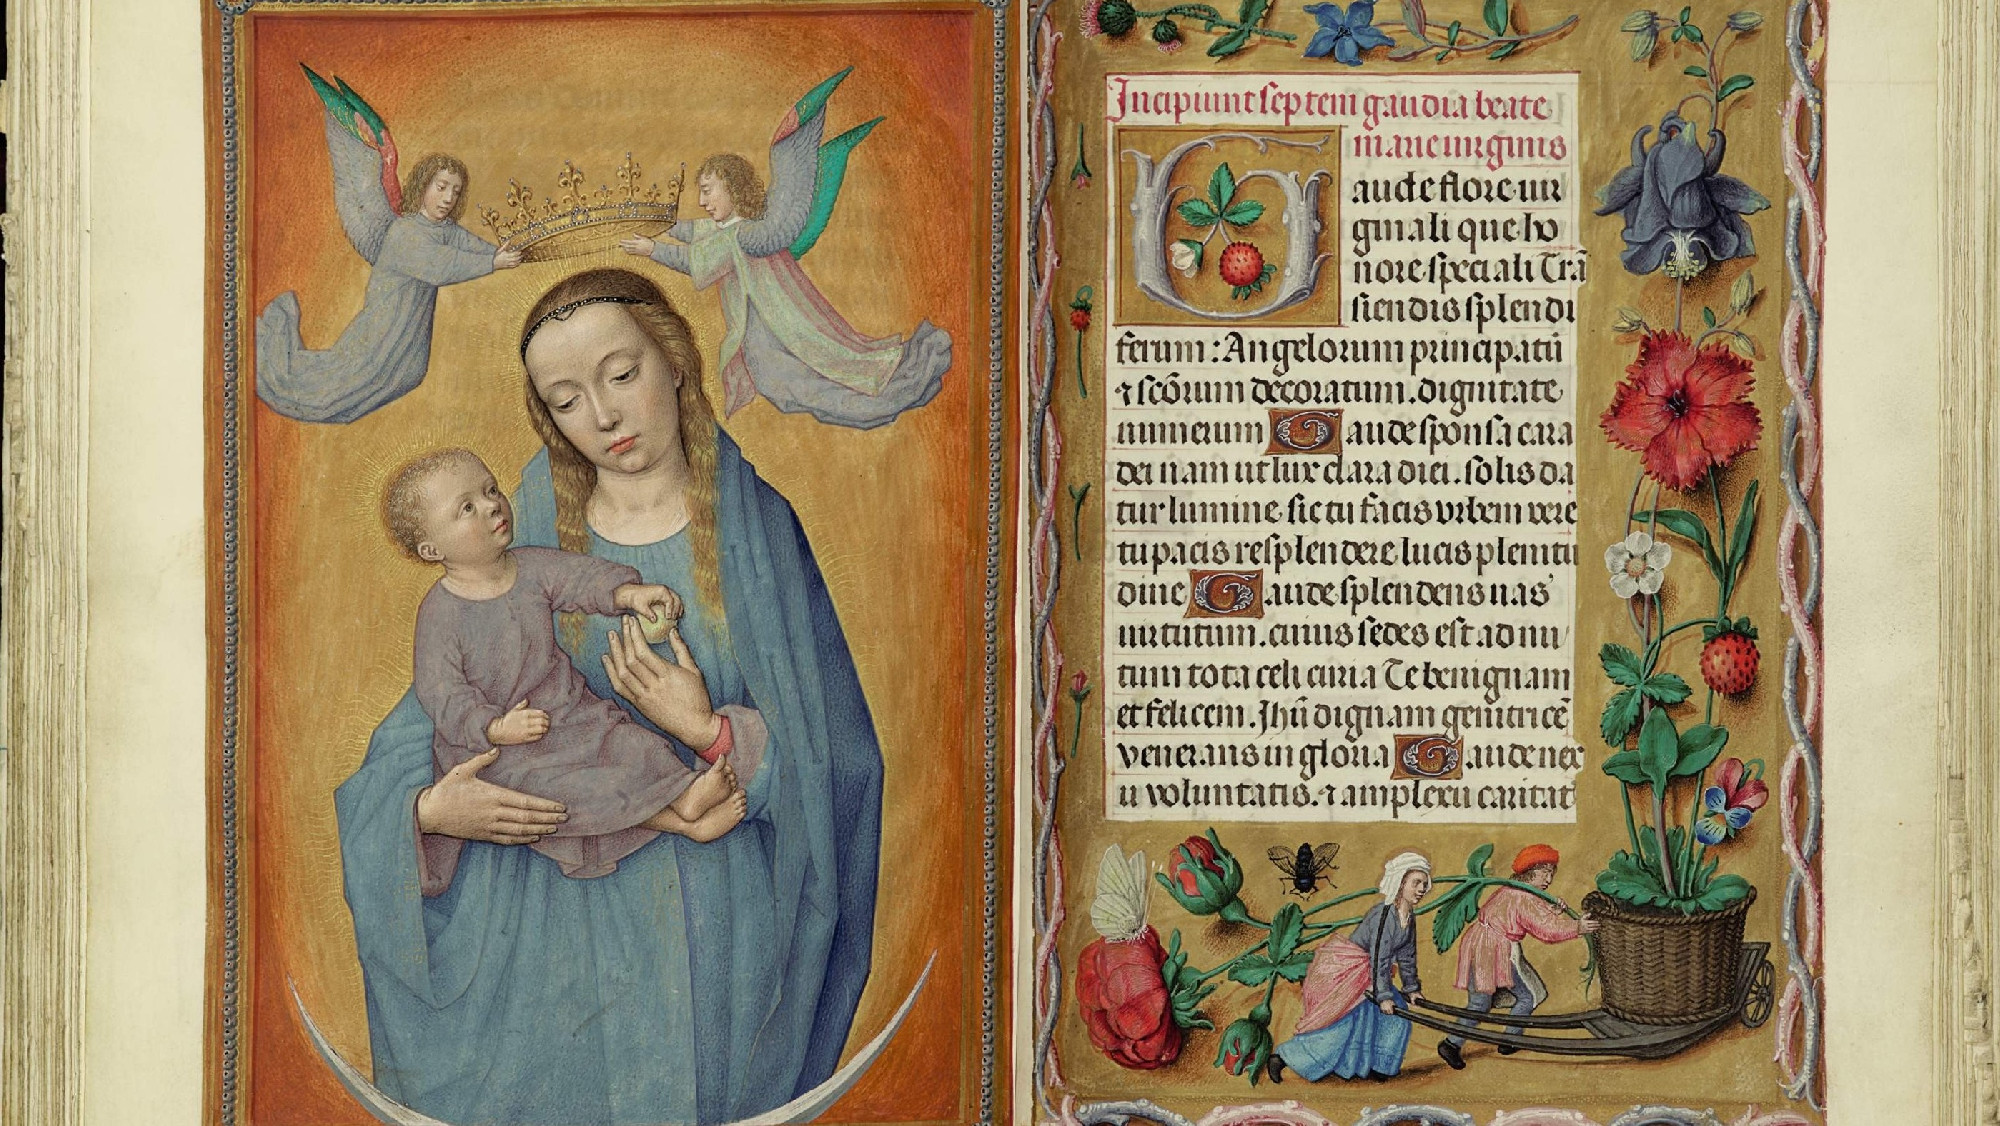 Incipiunt septem gaudia beate
marie uirginis
Gaude flore uir
ginali que ho
nore speciali Trā
siendis splendi
ferum: Angelorum principatū
⁊ scōrum decoratum. dignitate
numerum Gaude sponsa cara
dei nam ut lux clara diei. solis da
tur lumine sic tu facis orbem vere
tu pacis resplendere lucis plenitu
dine Gaude splendens uas
uirtutum. cuius sedes est ad nu
tum tota celi curia Te benignam
et felicem. Jhū dignam genitricē
venerans in gloria Gaude nex
u voluntatis. ⁊ amplexu caritat